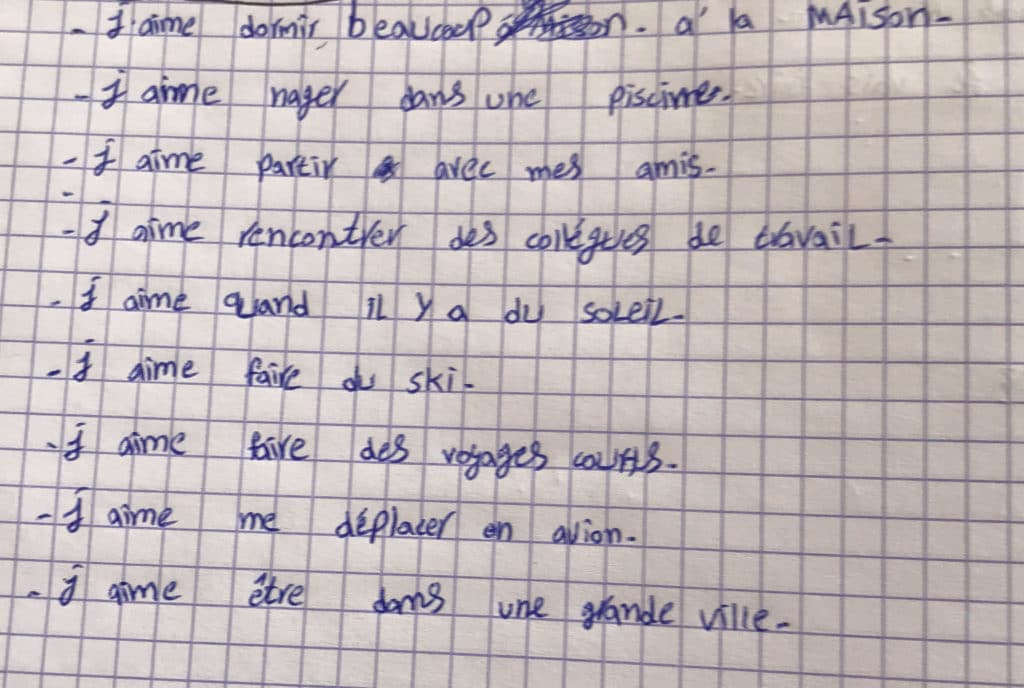 - J'aime dormir beaucoup à la MAISON -
- J aime nager dans une piscine.
- J aime partir avec mes amis -
- J aime rencontrer des collégues de travail -
- J aime quand il y a du soleil -
- J aime faire du ski -
- J aime faire des voyages courts -
- J aime me déplacer en avion -
- J aime être dans une grande ville -